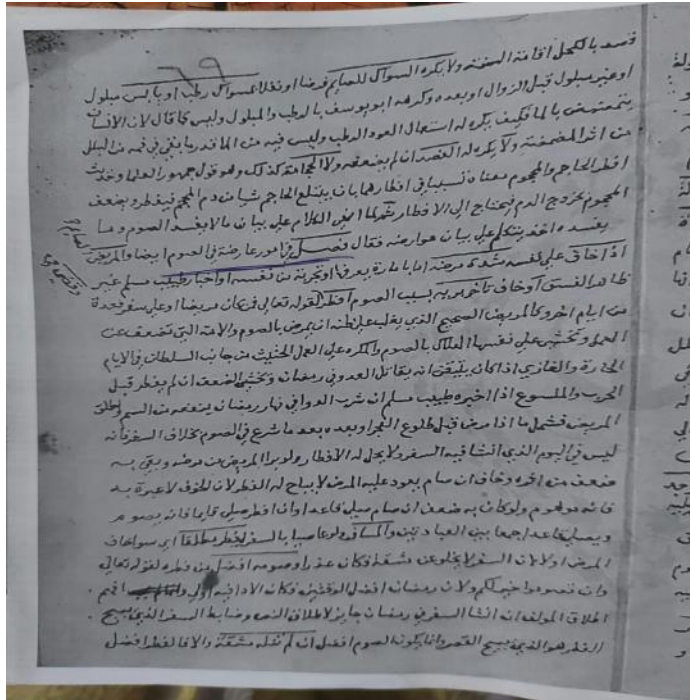 ٧٩
قصد بالكحل اقامة السنة ولا يكره السواك للصايم فرضا او نفلا بمسواك رطب او يابس مبلول
او غير مبلول قبل الزوال او بعده وكرهه ابو يوسف بالرطب والمبلول وليس كما قال لان الانسان
يتمضمض بالما فكيف يكره له استعمال العود الرطب وليس فيه من الما قدر ما بقي في فمه من البلل
من اثر المضمضة ولا يكره له الفصد ان لم يضعفه ولا الحجامة كذلك وهو قول جمهور العلما وحديث
افطر الحاجم والمحجوم معناه تسببا في افطارهما بان يبتلع الحاجم شيا من دم المحجم فيفطر ويضعف
المحجوم بخروج الدم فيحتاج الى الافطار ثم لما انهى الكلام على بيان ما لا يفسد الصوم وما
يفسده اخذ يتكلم على بيان عوارضه فقال فصل في امور عارضة في الصوم ايضا والمريض
اذا خاف على نفسه شدة مرضه اما بامارة يعرفها او تجربة من نفسه او اخبار طبيب مسلم غير
ظاهر الفسق او خاف تاخر برءه بسبب الصوم افطر لقوله تعالى فمن كان مريضا او على سفر فعدة
من ايام اخر وكالمريض الصحيح الذي يغلب على ظنه ان يمرض بالصوم والامة التي تضعف عن
العمل وتخشى على نفسها الهلاك بالصوم والمكره على العمل الحثيث من جانب السلطان في الايام
الحارة والغازي اذا كان يتيقن انه يقاتل العدو في رمضان وتخشى الضعف ان لم يفطر قبل
الحرب والملسوع اذا اخبره طبيب مسلم ان شرب الدوا في نهار رمضان ينفعه من السم واطلق
المريض فشمل ما اذا مرض قبل طلوع الفجر او بعده بعد ما شرع في الصوم بخلاف السفر فانه
ليس في اليوم الذي انشا فيه السفر ولا يحل له الافطار ولو برا المريض من مرضه وبقي به
ضعف من اثره وخاف ان صام يعود عليه المرض لا يباح له الفطر لان الخوف لا عبرة به
فانه موهوم ولو كان به ضعف ان صام صلى قاعدا وان افطر صلى قايما فانه يصوم
ويصلي قاعدا جمعا بين العبادتين والمسافر ولو عاصيا بالسفر يفطر مطلقا اي سوا خاف
المرض او لا لان السفر لا يخلو عن مشقة فكان عذرا وصومه افضل من فطره لقوله تعالى
وان تصوموا خير لكم ولان رمضان افضل الوقتين فكان الادا فيه اولى افهم
اطلاق المولف ان انشا السفر في رمضان جايز لاطلاق النص وضابط السفر الذي يبيح
الفطر هو الذي يبيح القصر وانما يكون الصوم افضل ان لم تنله مشقة والا فالفطر افضل